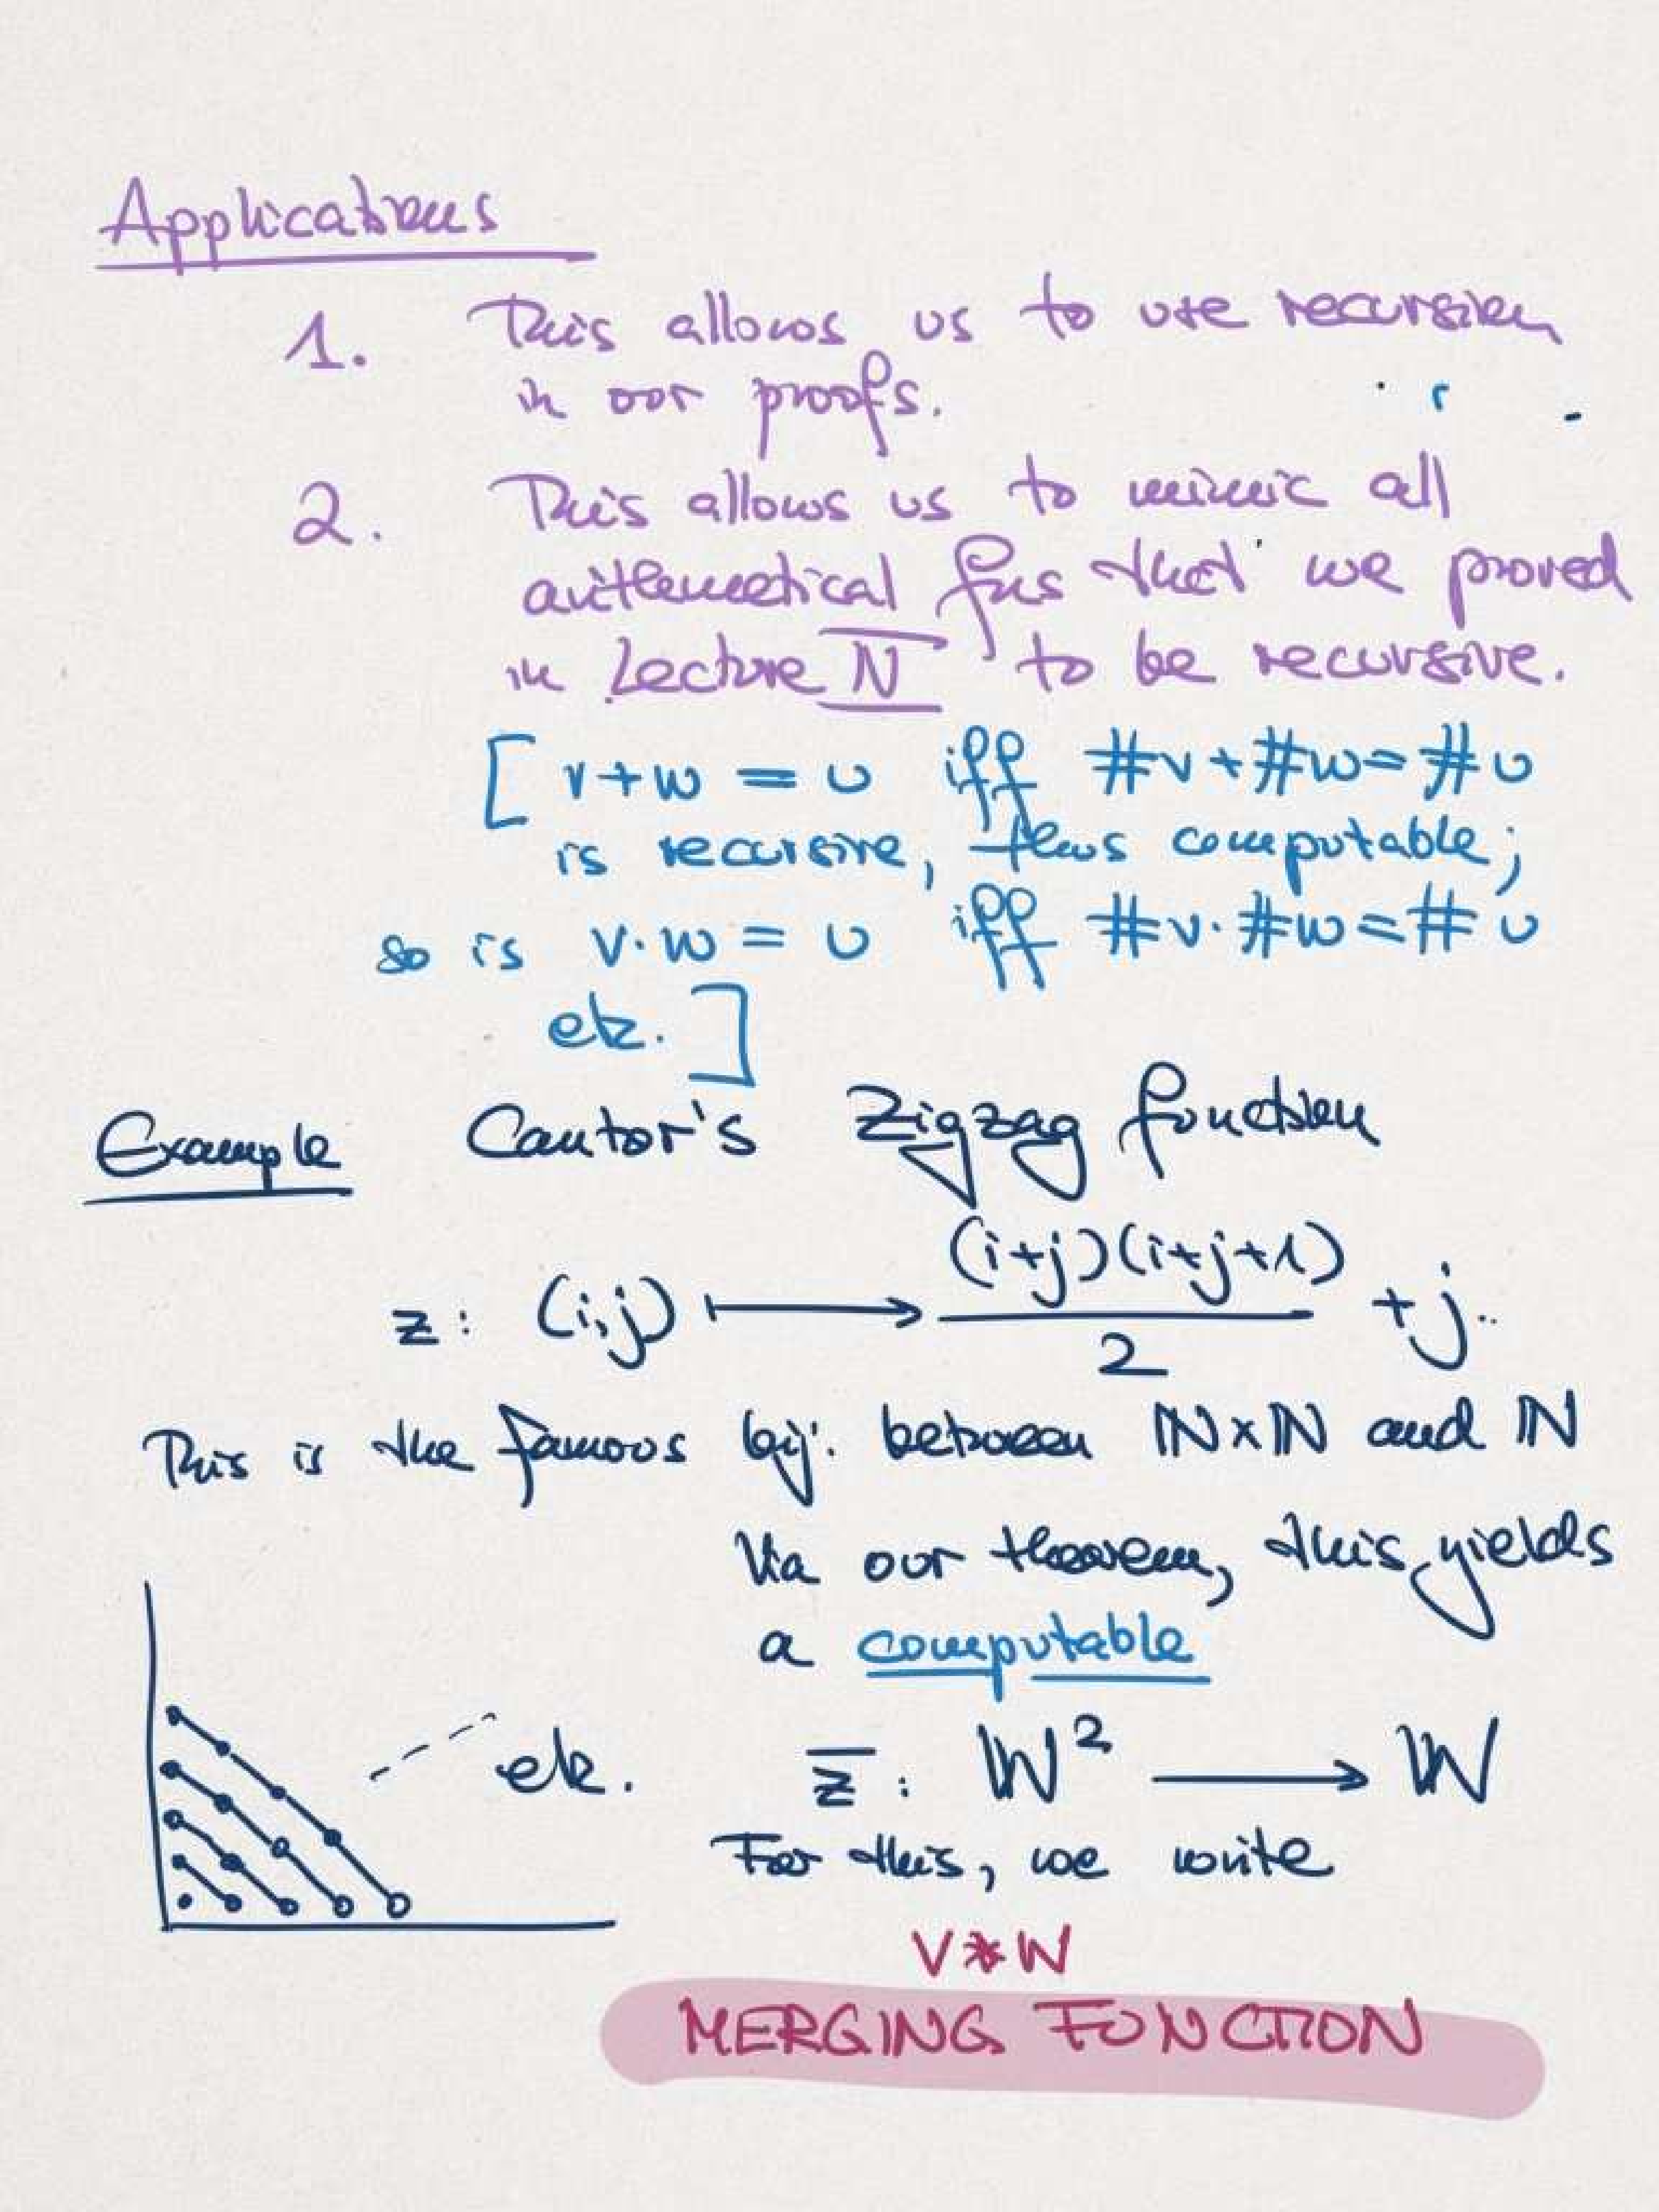 Applications
1. This allows us to use recursion
in our proofs.
2. This allows us to mimic all
arithmetical fns that we proved
in Lecture IV to be recursive.
[ v+w = u iff #v+#w=#u
is recursive, thus computable;
so is v·w = u iff #v·#w=#u
etc. ]
Example Cantor's Zigzag function
z: (i,j) ⟼ (i+j)(i+j+1)/2 + j.
This is the famous bij. between ℕ×ℕ and ℕ
Via our theorem, this yields
a computable
etc. z̅ : 𝕎² ⟶ 𝕎
For this, we write
v*w
MERGING FUNCTION